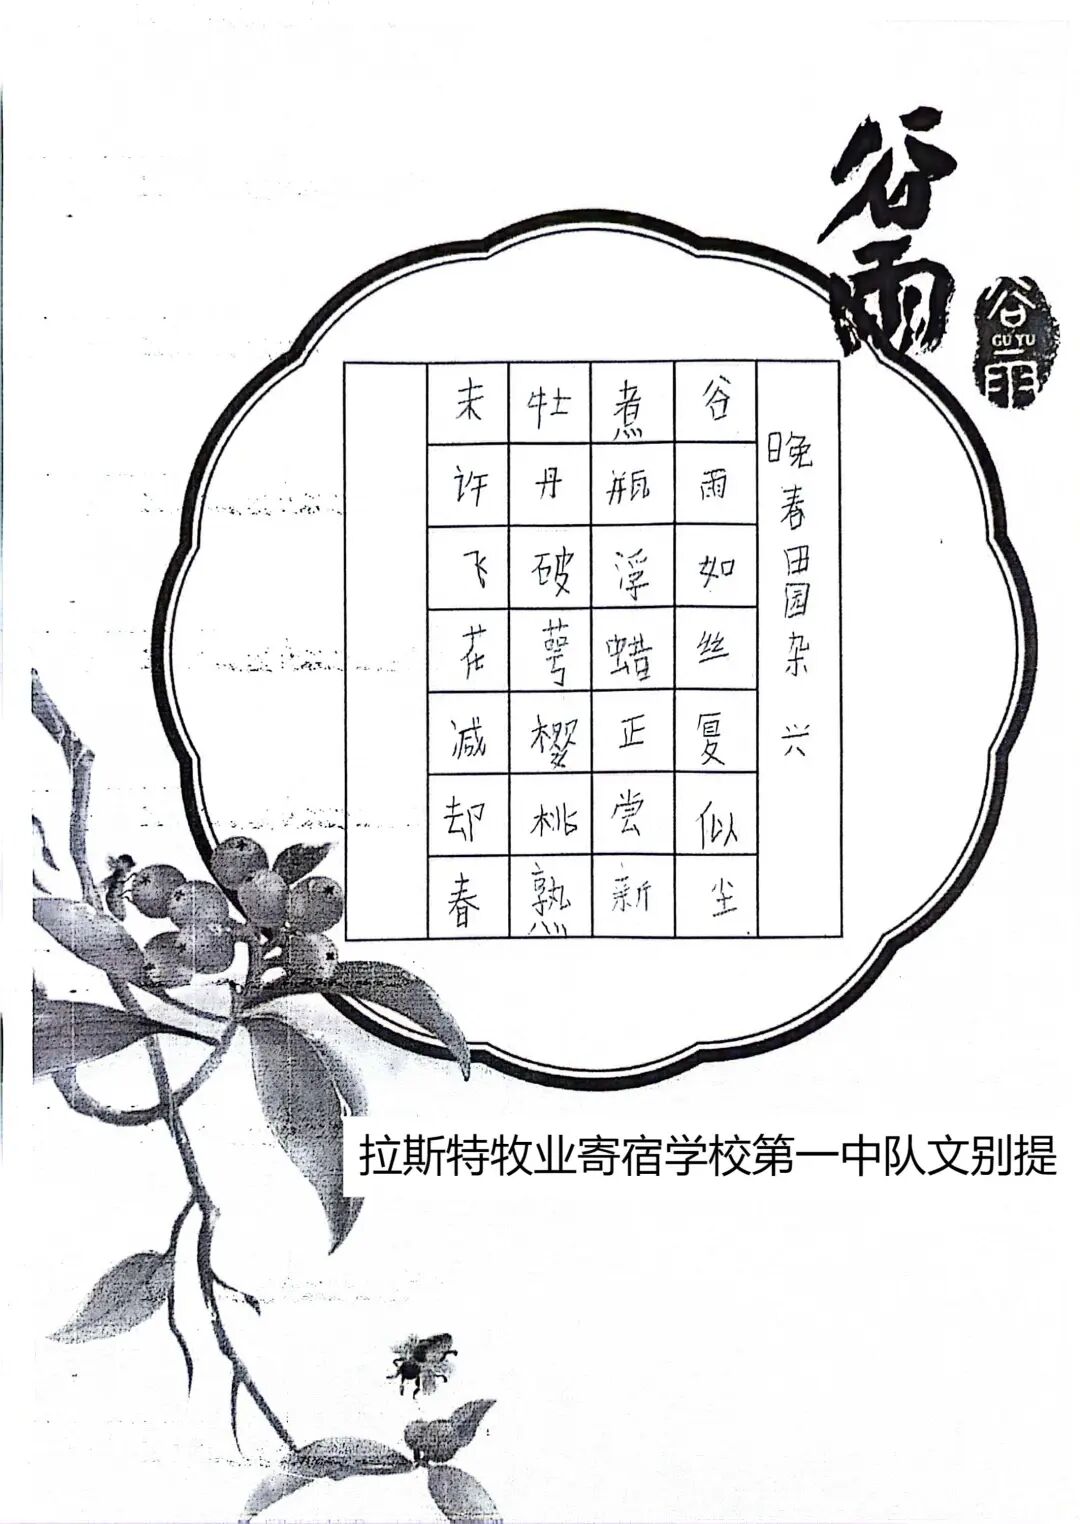 谷雨
谷雨
GU YU
晚春田园杂兴
谷雨如丝复似尘
煮瓶浮蜡正尝新
牡丹破萼樱桃熟
未许飞花减却春
拉斯特牧业寄宿学校第一中队文别提